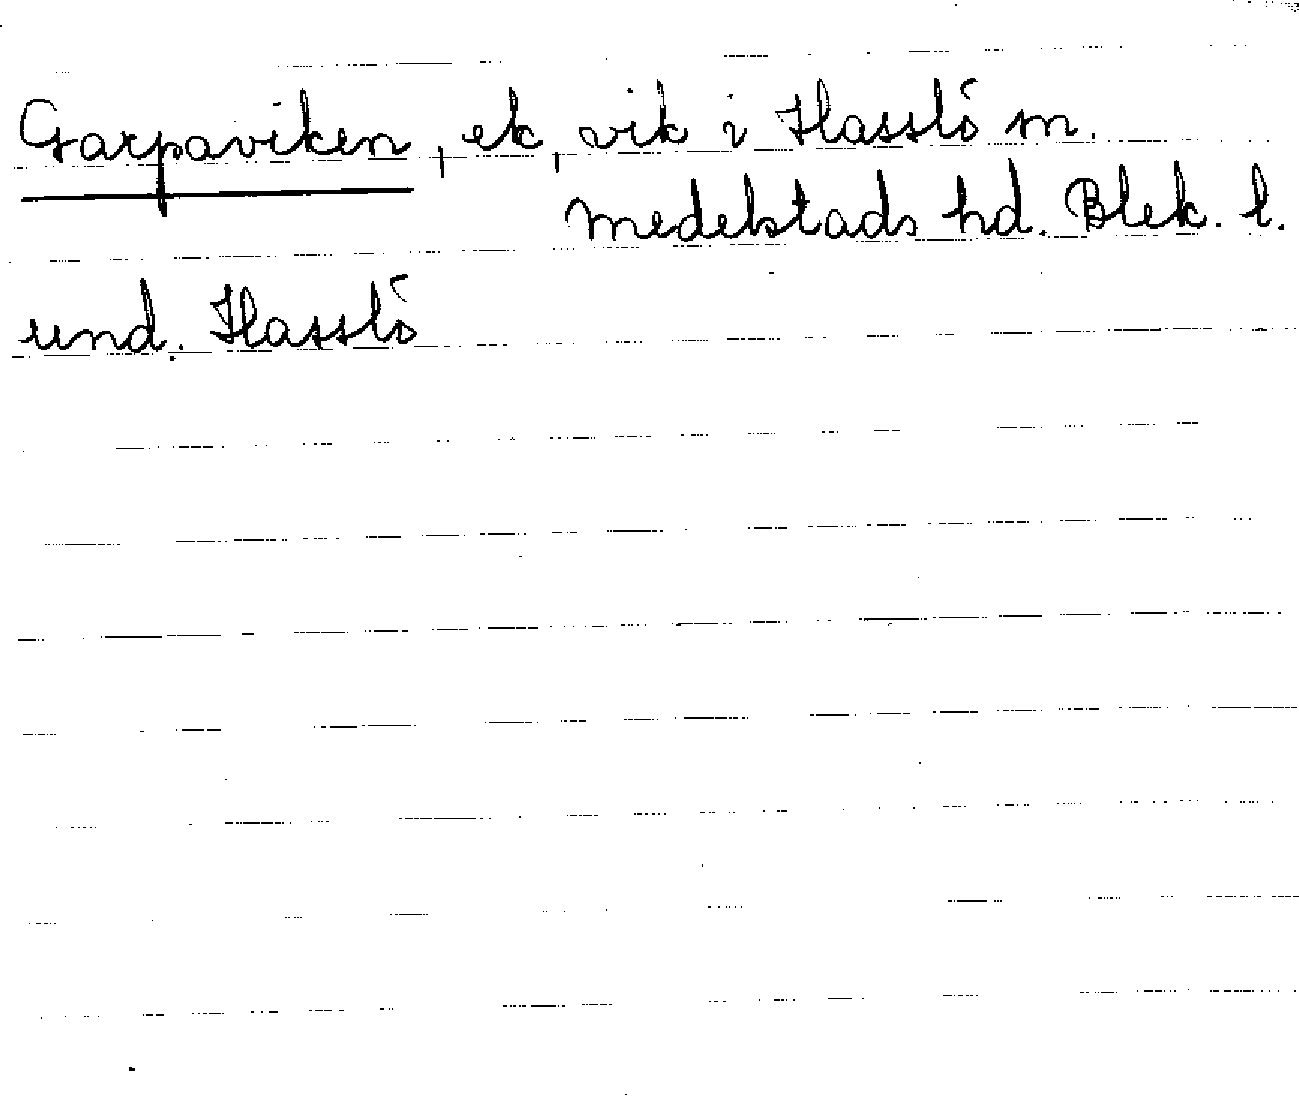 Garpaviken, ek, vik i Hasslö sn.
Medelstads hd. Blek. l.
und. Hasslö